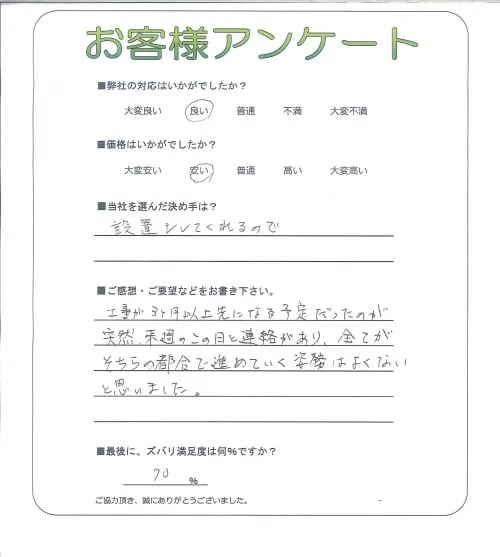 お客様アンケート
■弊社の対応はいかがでしたか？
大変良い 良い 普通 不満 大変不満
■価格はいかがでしたか？
大変安い 安い 普通 高い 大変高い
■当社を選んだ決め手は？
設置シレてくれるので
■ご感想・ご要望などをお書き下さい。
工事が3ヶ月以上先になる予定だったのが
突然、来週のこの日と連絡があり、全てが
そちらの都合で進めていく姿勢はよくない
と思いました。
■最後に、ズバリ満足度は何％ですか？
70 ％
ご協力頂き、誠にありがとうございました。